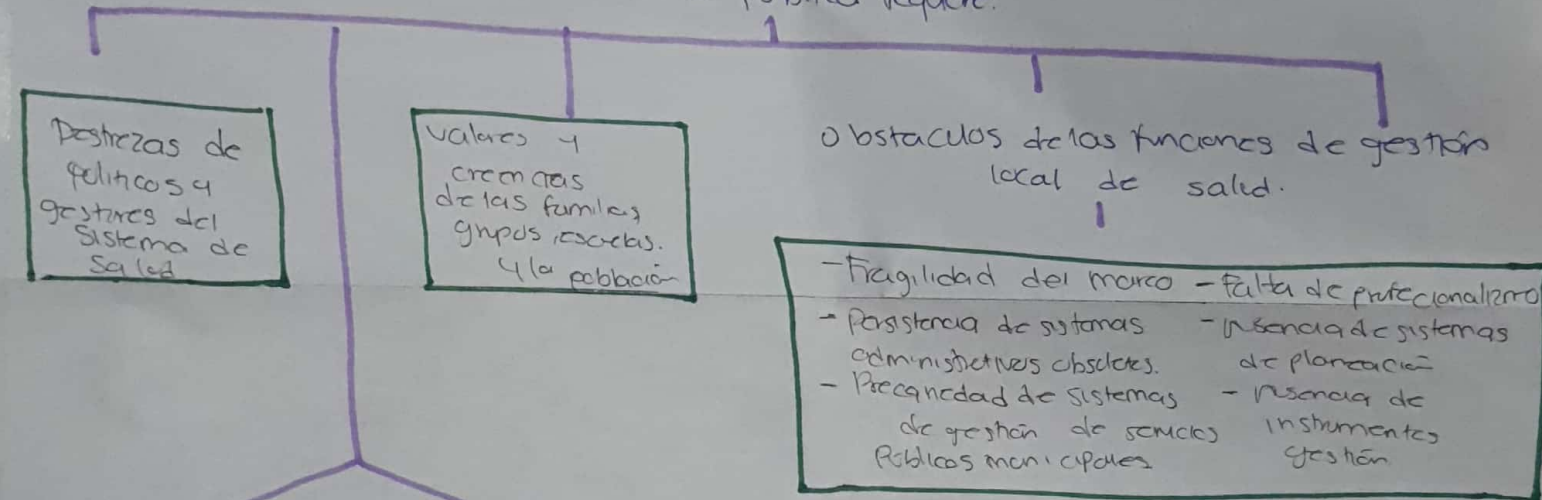 requiere.
Destrezas de
politicos y
gestores del
Sistema de
Salud
Valores y
creencias
de las familias,
grupos, escuelas.
y la población
Obstaculos de las funciones de gestión
local de salud.
- Fragilidad del marco
- Persistencia de sistemas
administrativos obsoletos.
- Precariedad de sistemas
de gestión de servicios
Públicos municipales
- Falta de profecionalizmo
- insencia de sistemas
de planeación
- insencia de
instrumentos
gestión